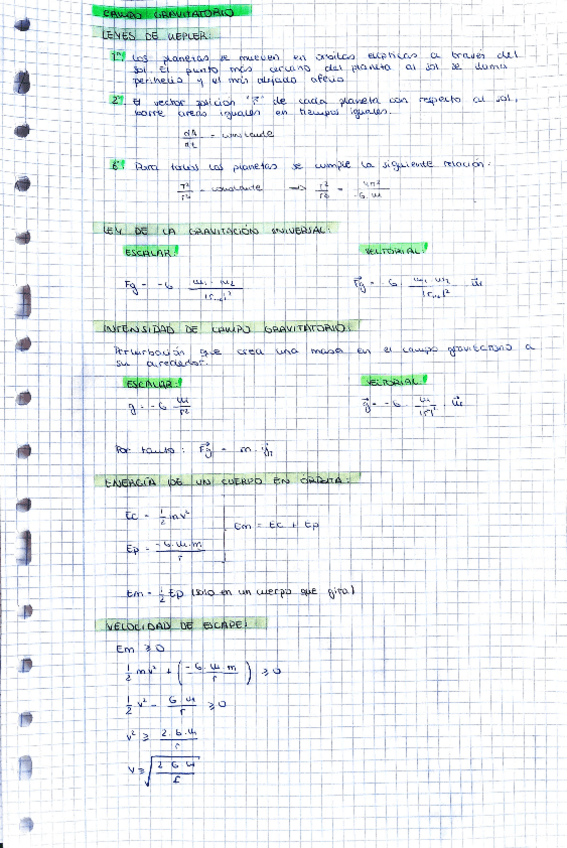 CAMPO GRAVITATORIO
LEYES DE KEPLER:
1º Los planetas se mueven en órbitas elípticas a través del
sol. El punto más cercano del planeta al sol se llama
perihelio y el más alejado afelio
2º El vector posición "r⃗" de cada planeta con respecto al sol,
barre áreas iguales en tiempos iguales.
dA/dt = constante
Para todos los planetas se cumple la siguiente relación.
= constante
LEY DE LA GRAVITACIÓN UNIVERSAL:
ESCALAR: VECTORIAL:
Fg = -G · m1 · m2
INTENSIDAD DE CAMPO GRAVITATORIO:
Perturbación que crea una masa en el campo gravitatorio a
su alrededor.
ESCALAR: VECTORIAL:
g = -G M/r²
Por tanto: F⃗g = m ·
ENERGÍA DE UN CUERPO EN ÓRBITA:
Ec = 1/2 mv²
Em = Ec + Ep
Ep = -G·M·m/r
Em = 1/2 Ep (solo en un cuerpo que gira)
VELOCIDAD DE ESCAPE:
Em ≥ 0
1/2 mv² + (-G·M·m/r) ≥ 0
1/2 v² - G·M/r ≥ 0
v² ≥ 2·G·M/r
v ≥ √(2 G M/r)